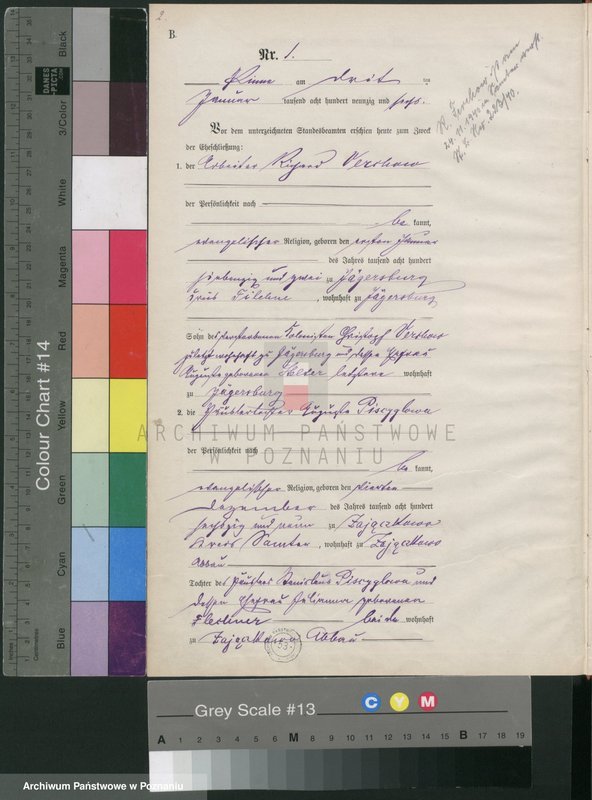 2.
B.
Nr. 1.
Pinne am drit ten
Januar tausend acht hundert neunzig und sechs.
Vor dem unterzeichneten Standesbeamten erschien heute zum Zweck
der Eheschließung:
1. der Arbeiter Richard
der Persönlichkeit nach
be kannt,
evangelischer Religion, geboren den ersten Januar
des Jahres tausend acht hundert
siebenzig und zwei zu Jägersburg
Kreis Filehne, wohnhaft zu Jägersburg
Sohn des verstorbenen Kolonisten Christoph
zuletzt wohnhaft zu Jägersburg und dessen Ehefrau
Auguste geborenen letztere wohnhaft
zu Jägersburg
2. die Auguste
der Persönlichkeit nach
be kannt,
evangelischer Religion, geboren den vierten
Dezember des Jahres tausend acht hundert
sechszig und neun zu Zajączkowo
Kreis Samter, wohnhaft zu Zajączkowo
Abbau
Tochter des Stanislaus und
dessen Ehefrau Julianna geborenen
beide wohnhaft
zu Zajączkowo Abbau
ARCHIWUM PAŃSTWOWE
W POZNANIU
DANES
PICTA
.COM
Colour Chart #14
Black
3/Color
White
Magenta
Red
Yellow
Green
Cyan
Blue
Inches
Centimetres
Grey Scale #13
C Y M
A 1 2 3 4 5 6 M 8 9 10 11 12 13 14 15 B 17 18 19
Archiwum Państwowe w Poznaniu